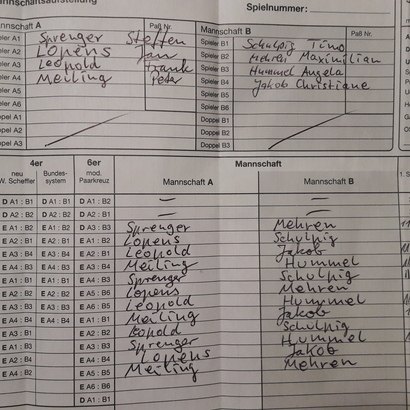 Mannschaftsaufstellung
Spielnummer:
Mannschaft A Paß Nr. Mannschaft B Paß Nr.
Spieler A1 Sprenger Steffen Spieler B1 Schulpig Tino
Spieler A2 Lopens Jan Spieler B2 Mehren Maximilian
Spieler A3 Leopold Frank Spieler B3 Hummel Angela
Spieler A4 Meiling Peter Spieler B4 Jakob Christiane
Spieler A5 Spieler B5
Spieler A6 Spieler B6
Doppel A1 Doppel B1
Doppel A2 Doppel B2
Doppel A3 Doppel B3
4er 6er Mannschaft
neu W. Scheffler Bundes-system mod. Paarkreuz Mannschaft A Mannschaft B
D A1 : B1 D A1 : B1 D A1 : B2 — —
D A2 : B2 D A2 : B2 D A2 : B1 — —
E A1 : B2 E A1 : B2 D A3 : B3 Sprenger Mehren
E A2 : B1 E A2 : B1 E A1 : B2 Lopens Schulpig
E A3 : B4 E A3 : B4 E A2 : B1 Leopold Jakob
E A4 : B3 E A4 : B3 E A3 : B4 Meiling Hummel
E A1 : B1 E A1 : B1 E A4 : B3 Sprenger Schulpig
E A2 : B2 E A2 : B2 E A5 : B6 Lopens Mehren
E A3 : B3 E A3 : B3 E A6 : B5 Leopold Hummel
E A4 : B4 E A4 : B4 E A1 : B1 Meiling Jakob
E A3 : B1 E A2 : B2 Leopold Schulpig
E A1 : B3 E A3 : B3 Sprenger Hummel
E A2 : B4 E A4 : B4 Lopens Jakob
E A4 : B2 E A5 : B5 Meiling Mehren
E A6 : B6
D A1 : B1